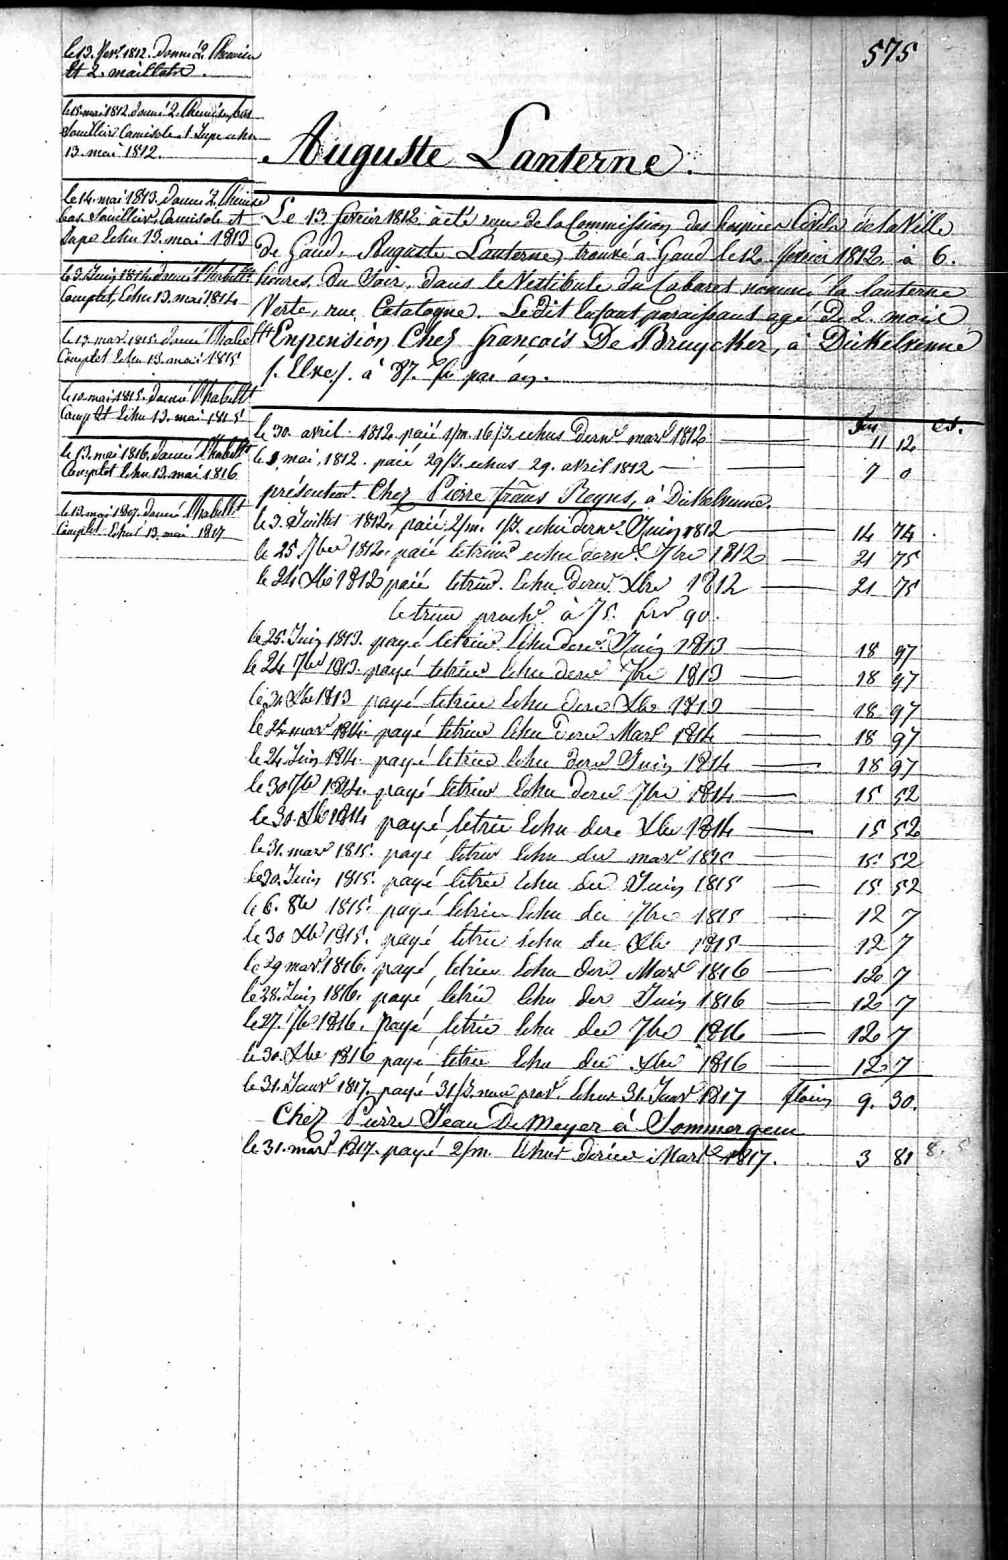 575
le 13. fevr. 1812. donné 2. Chemise
et 2. maillots.
le 15. mai 1812. donné 2. Chemise, bas
Souillier Camisole & Jupe echu
13. mai 1812.
le 14. mai 1813. donné 2. Chemise
bas. Souillier, Camisole et
Jupe Echu 13. mai 1813
le 3. Juin 1814. donné l'habillt
Complet, Echu 13. mai 1814
le 13. mars 1815. donné l'habillt
Complet Echu 13. mai 1815
le 10. mai 1815. donné l'habillt
Complet Echu 13. mai 1815
le 13. mai 1816. donné l'habillt
Complet Echu 13. mai 1816
le 13. mai 1817. donné l'habillt
Complet Echu 13. mai 1817
Auguste Lanterne.
Le 13 fevrier 1812 à été reçu de la Commission des hospices Civils de la Ville
de Gand, Auguste Lanterne, trouvé à Gand le 12 fevrier 1812 à 6.
heures du Soir, dans le Vestibule du Cabaret nommé la lanterne
Verte, rue Catalogne. Ledit Enfant paraissant agé de 2. mois
En pension Chez francois De Bruycker, à Dickelvenne
f. Elxe f. à 87. fr par an.
fr ct.
le 30. avril. 1812. paié 1/m. 16/J. echus dernr mars 1812 11 12
le mai, 1812. paié 29/J. echus 29. avril 1812 7 0
présentemt. Chez Pierre frans Reyns, à Dickelvenne.
le 3. Juillet 1812, paié 2/m. 1/J. echu dernr Juin 1812 14 74
le 25. 7bre 1812. paié letrim. echu dernr. 7bre 1812 21 75
le 24 Xbre 1812 paié letrim. Echu dernr. Xbre 1812 21 75
letrim proch. à 75. frs 90.
le 25. Juin 1813. payé letrim Echu dernr Juin 1813 18 97
le 24 7bre 1813. payé letrim Echu dernr 7bre 1813 18 97
le 24 Xbre 1813 payé letrim Echu dernr Xbre 1813 18 97
le 24 mars 1814. payé letrim Echu dernr Mars 1814 18 97
le 24 Juin 1814. payé letrim Echu dernr Juin 1814 18 97
le 30 7bre 1814. payé letrim Echu dernr 7bre 1814 15 52
le 30. Xbre 1814 payé letrim Echu dernr Xbre 1814 15 52
le 31. mars 1815. payé letrim Echu der mars 1815 15 52
le 30. Juin 1815. payé letrim Echu der Juin 1815 15 52
le 6. 8bre 1815. payé letrim Echu der 7bre 1815 12 7
le 30 Xbre 1815. payé letrim Echu der Xbre 1815 12 7
le 29 mars 1816. payé letrim Echu der Mars 1816 12 7
le 28. Juin 1816. payé letrim Echu der Juin 1816 12 7
le 27. 7bre 1816. payé letrim Echu der 7bre 1816 12 7
le 30. Xbre 1816 payé letrim Echu der Xbre 1816 12 7
le 31. Janvr 1817. payé 31/J. Echus 31. Janvr 1817 florins 9. 30.
Chez Pierre Jean De Meyer à Sommergem
le 31. mars 1817. payé 2/m. Echus dernier Mars 1817. 3 81